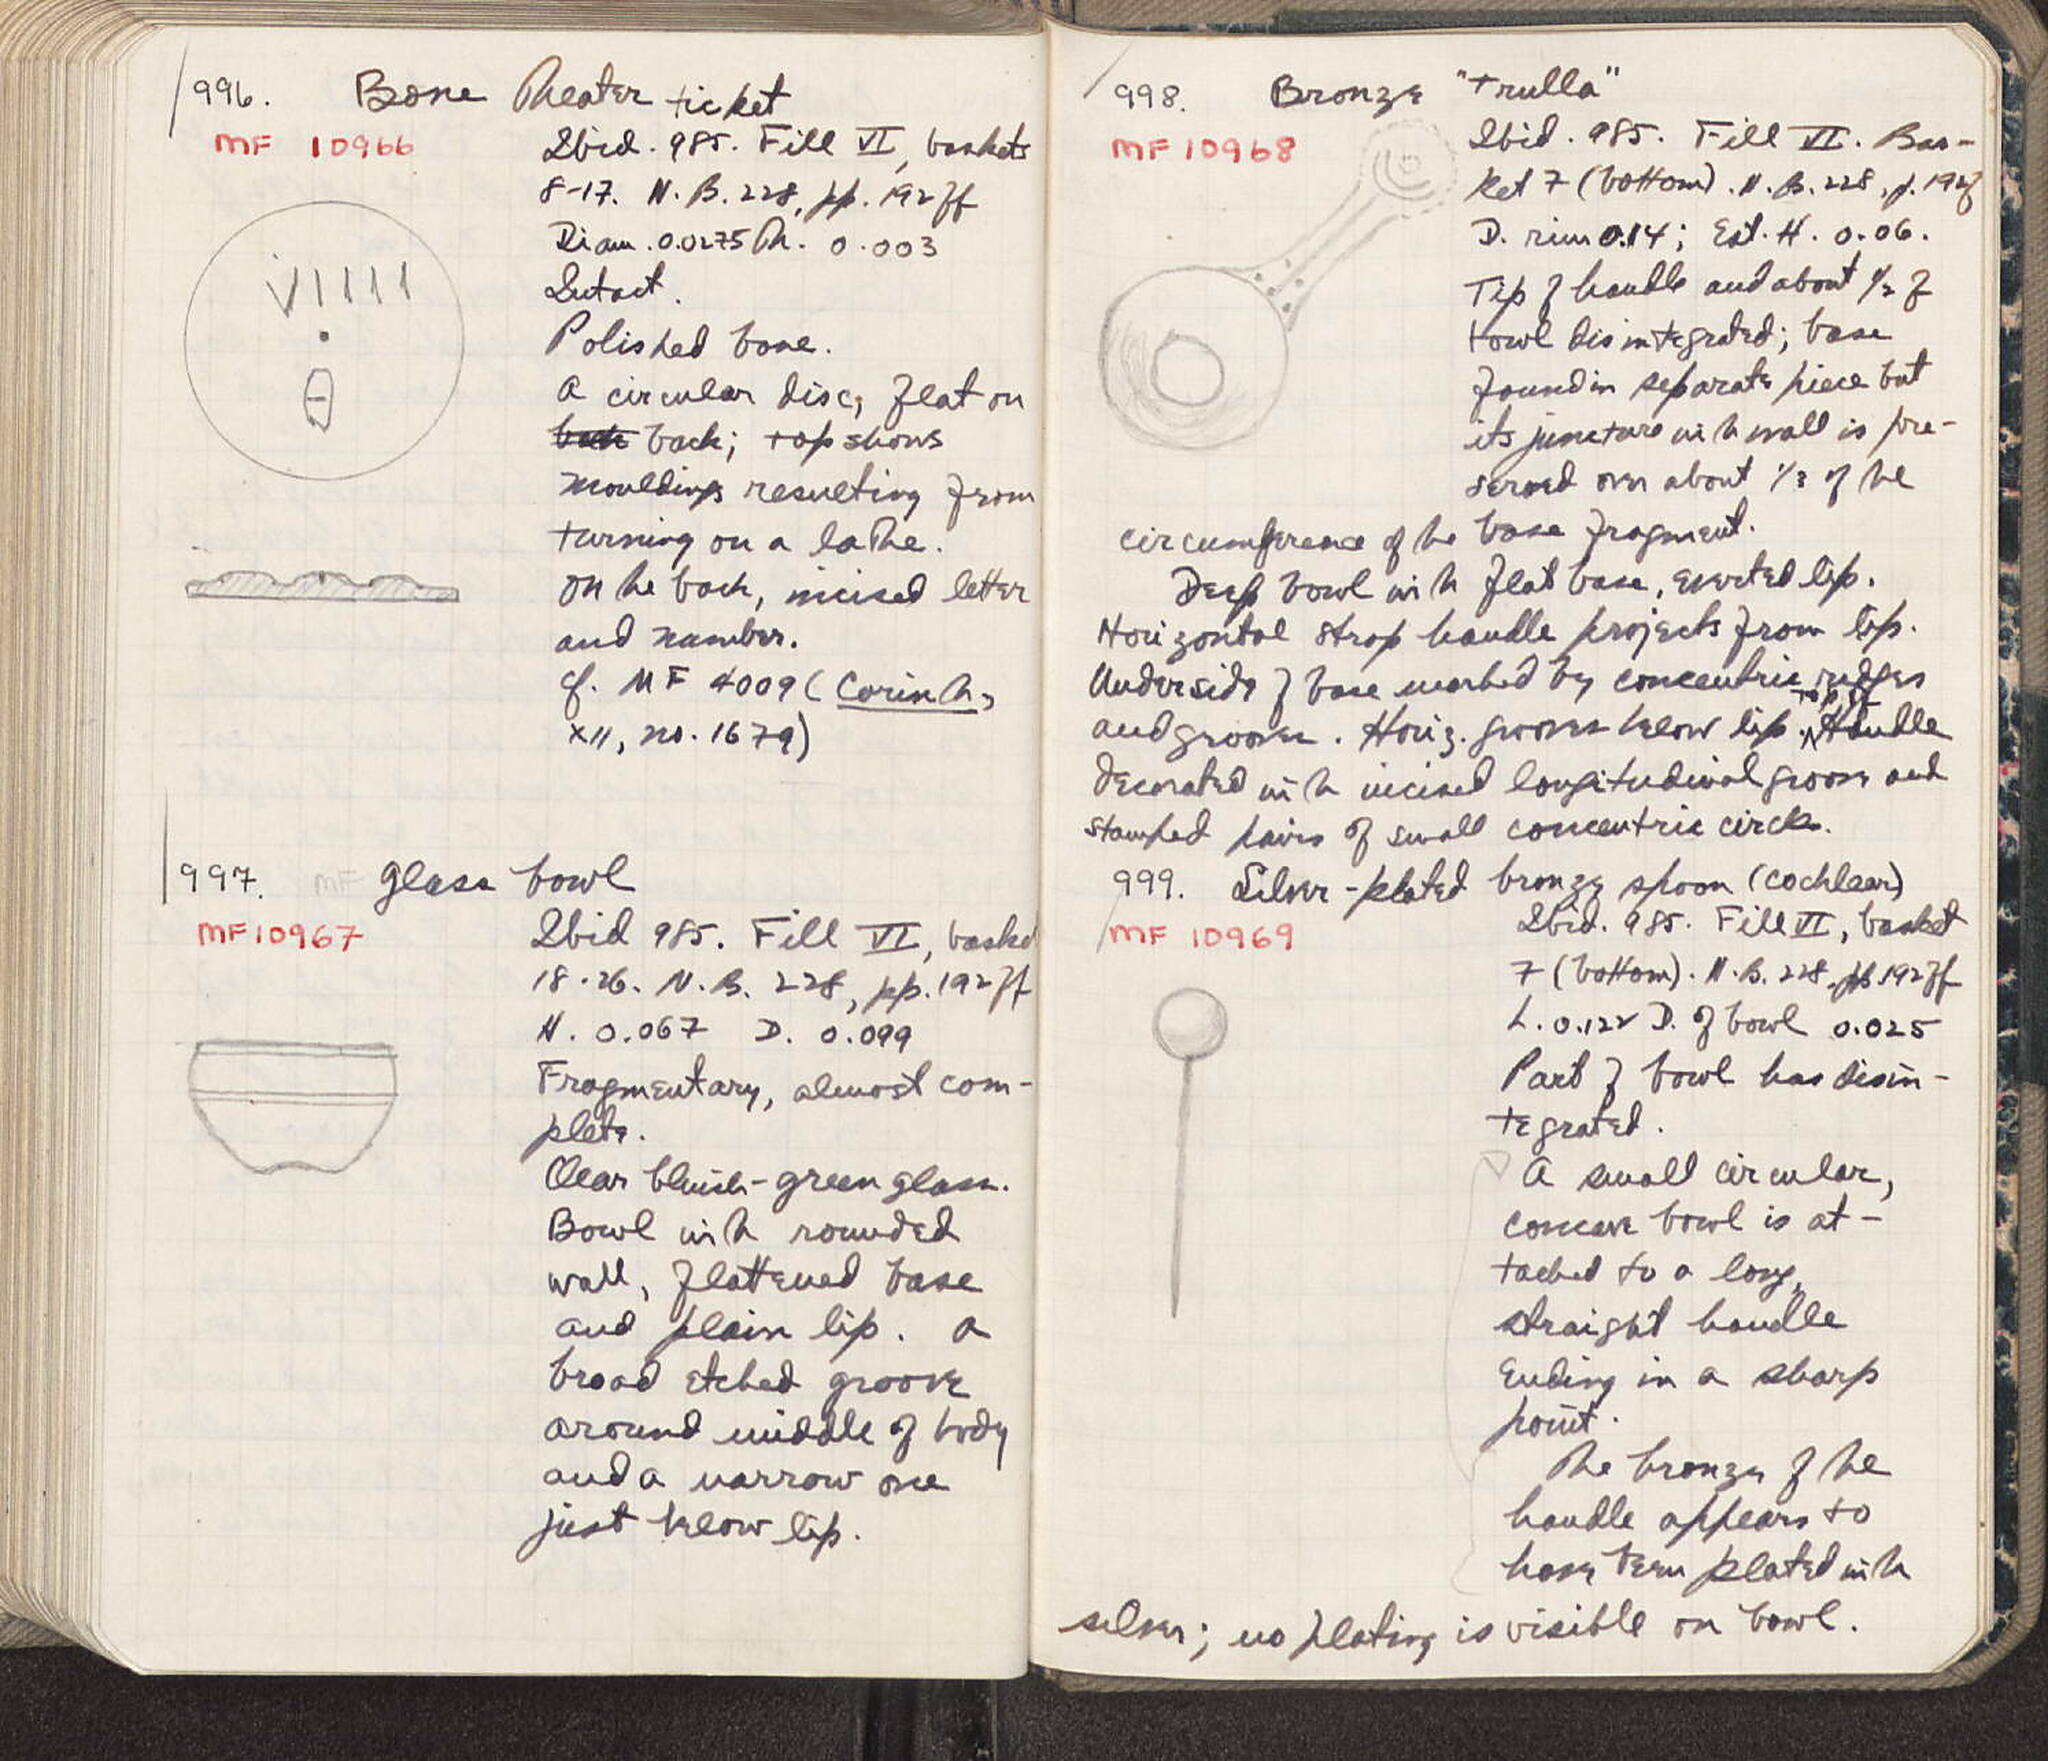 996. Bone Theater ticket
MF 10966
Ibid. 985. Fill VI, baskets
8-17. N.B. 228, pp. 192 ff
Diam. 0.0275 Th. 0.003
Intact.
VIIIII
Polished bone.
A circular disc, flat on
back back; top shows
mouldings resulting from
turning on a lathe.
On the back, incised letter
and number.
cf. MF 4009 (Corinth,
XII, no. 1679)
997. MF Glass bowl
MF10967
Ibid 985. Fill VI, basket
18-26. N.B. 228, pp. 192 ff
H. 0.067 D. 0.099
Fragmentary, almost com-
plete.
Clear bluish-green glass.
Bowl with rounded
wall, flattened base
and plain lip. A
broad etched groove
around middle of body
and a narrow one
just below lip.
998. Bronze "trulla"
MF 10968
Ibid. 985. Fill VI. Bas-
ket 7 (bottom). N.B. 228, p. 192 f
D. rim 0.14; Est. H. 0.06.
Tip of handle and about 1/2 of
bowl disintegrated; base
found in separate piece but
its juncture with wall is pre-
served over about 1/3 of the
circumference of the base fragment.
Deep bowl with flat base, everted lip.
Horizontal strap handle projects from lip.
Underside of base marked by concentric ridges
and grooves. Horiz. groove below lip. top of Handle
decorated with incised longitudinal groove and
stamped pairs of small concentric circles.
999. Silver-plated bronze spoon (cochlear)
MF 10969
Ibid. 985. Fill VI, basket
7 (bottom). N.B. 228, pp 192 ff
L. 0.122 D. of bowl 0.025
Part of bowl has disin-
tegrated.
A small circular,
concave bowl is at-
tached to a long,
straight handle
ending in a sharp
point.
The bronze of the
handle appears to
have been plated with
silver; no plating is visible on bowl.